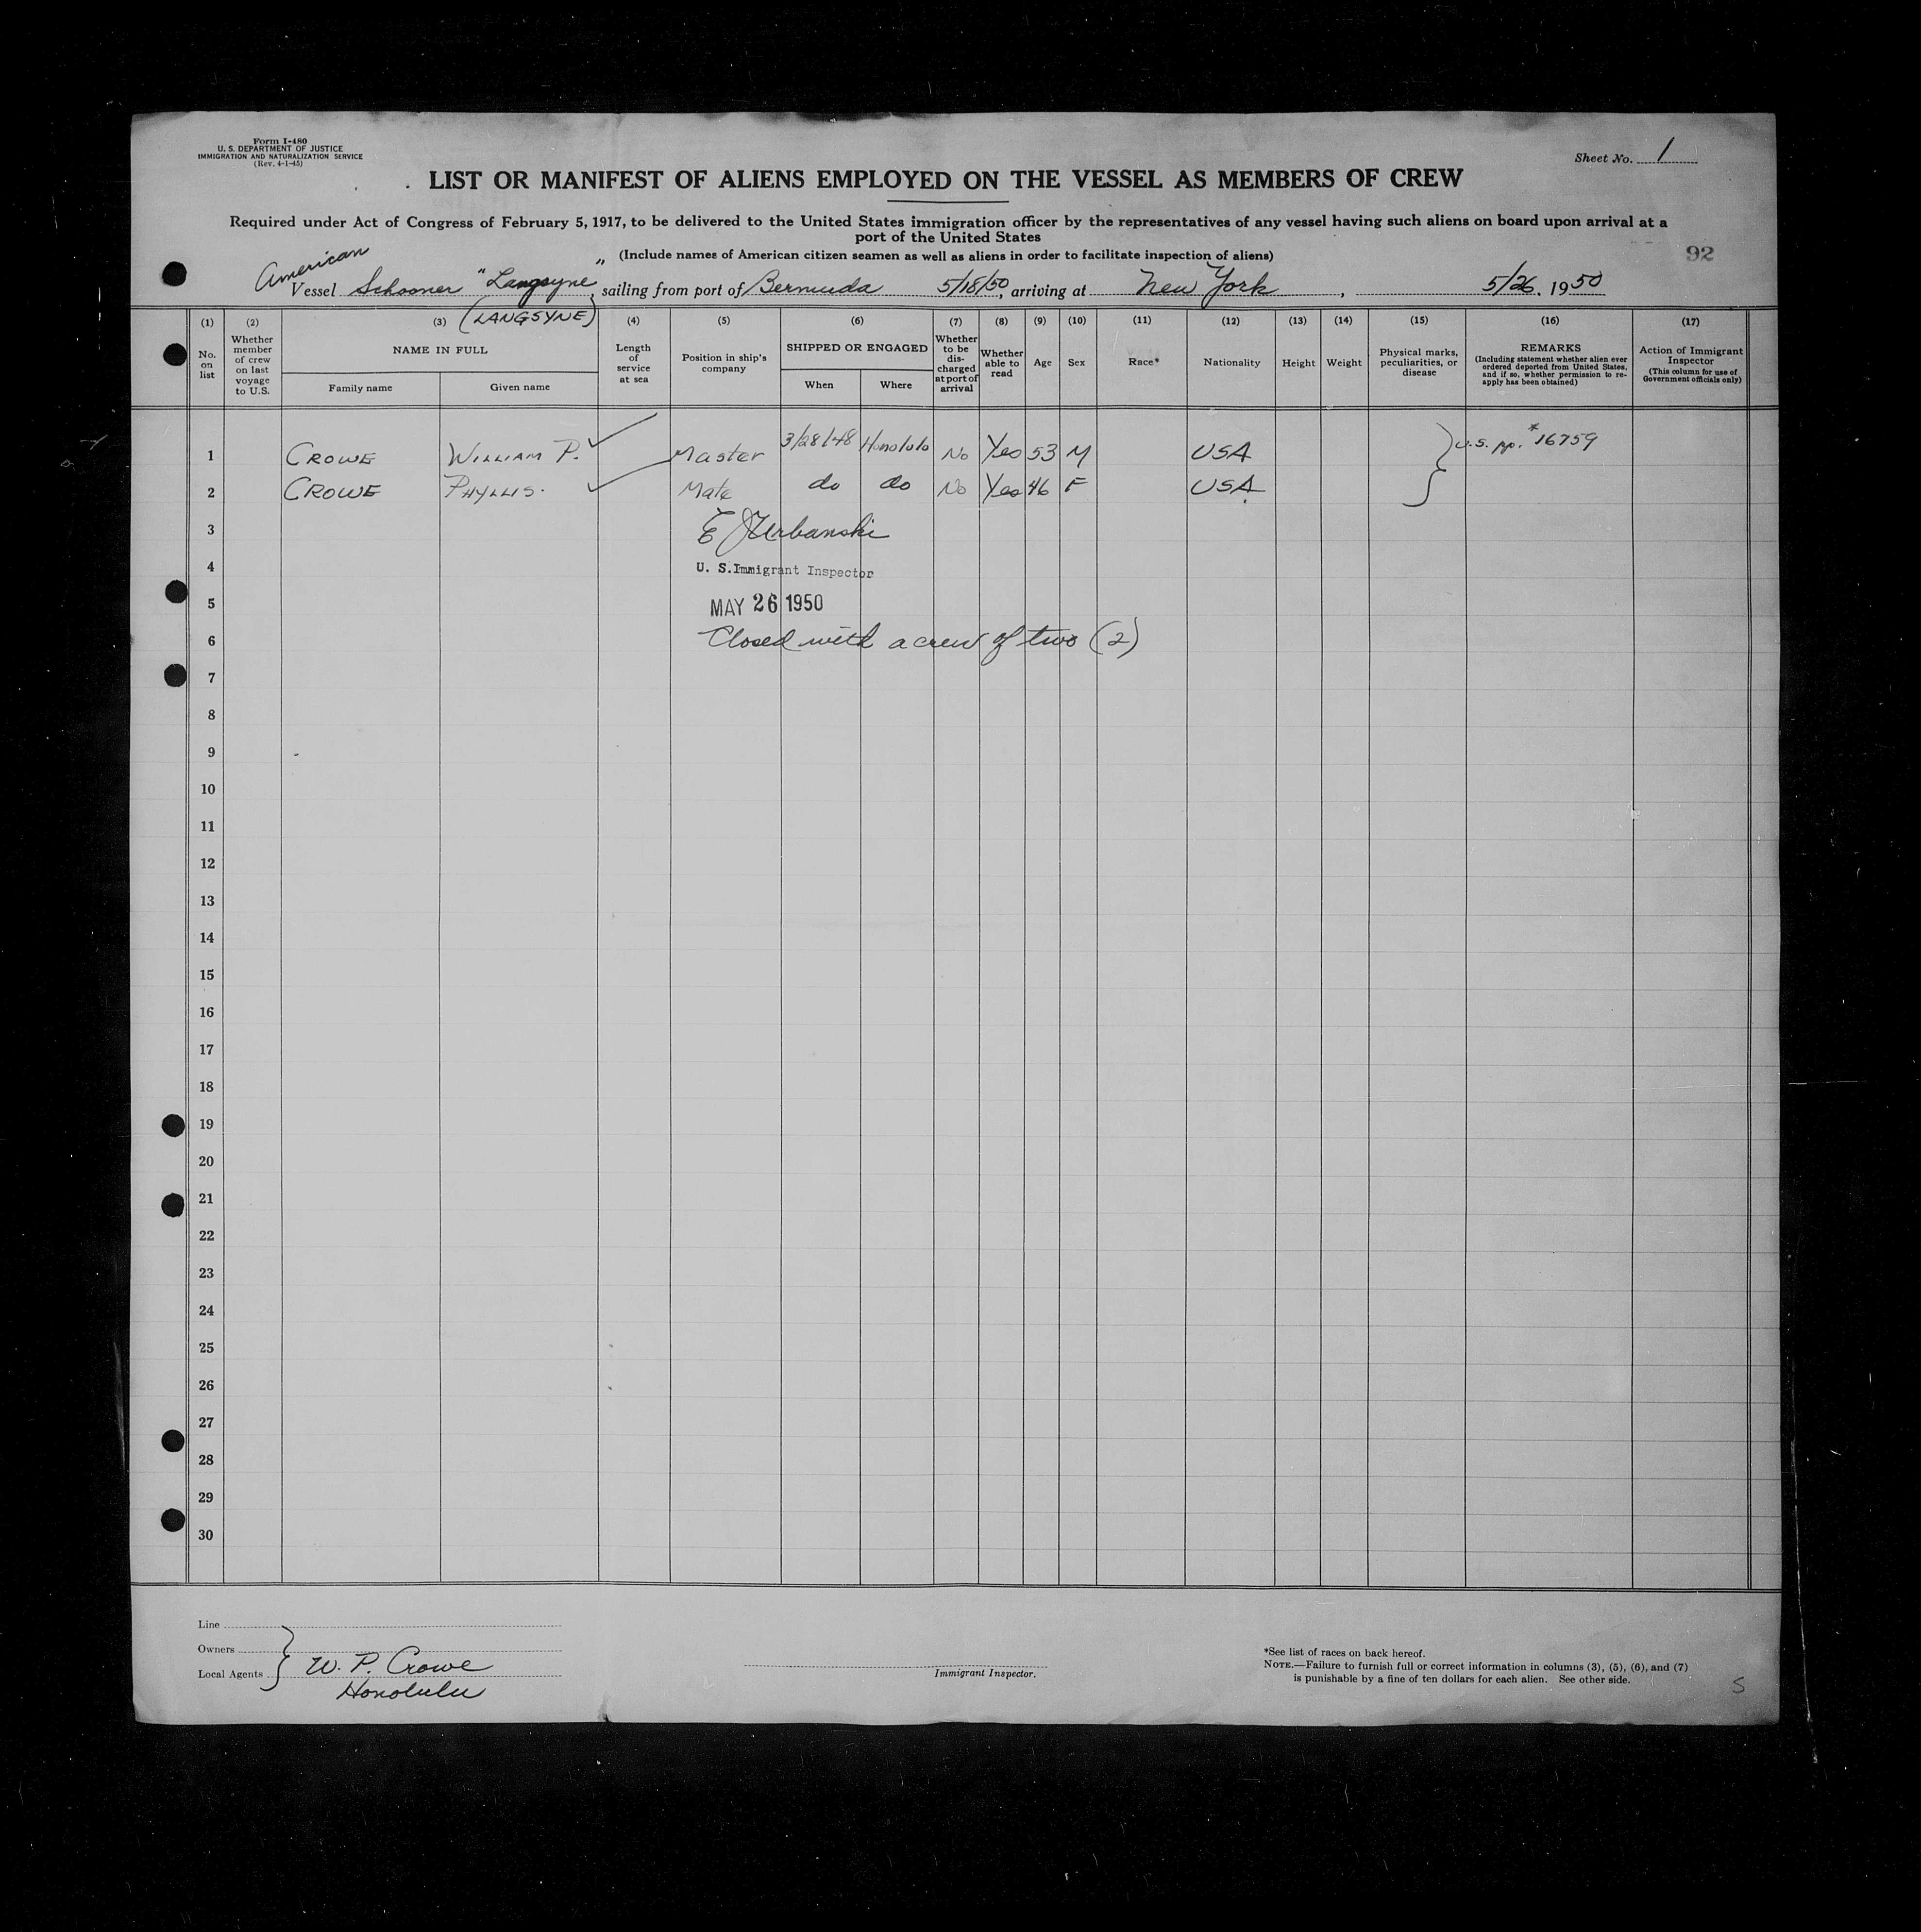 Form I-480
U. S. DEPARTMENT OF JUSTICE
IMMIGRATION AND NATURALIZATION SERVICE
(Rev. 4-1-45)
Sheet No. 1
LIST OR MANIFEST OF ALIENS EMPLOYED ON THE VESSEL AS MEMBERS OF CREW
Required under Act of Congress of February 5, 1917, to be delivered to the United States immigration officer by the representatives of any vessel having such aliens on board upon arrival at a
port of the United States
(Include names of American citizen seamen as well as aliens in order to facilitate inspection of aliens)
92
American
Vessel Schooner "Langsyne", sailing from port of Bermuda 5/18/50, arriving at New York, 5/26. 1950
(LANGSYNE)
(1) No. on list
(2) Whether member of crew on last voyage to U.S.
(3) NAME IN FULL
Family name
Given name
(4) Length of service at sea
(5) Position in ship's company
(6) SHIPPED OR ENGAGED
When
Where
(7) Whether to be dis-charged at port of arrival
(8) Whether able to read
(9) Age
(10) Sex
(11) Race*
(12) Nationality
(13) Height
(14) Weight
(15) Physical marks, peculiarities, or disease
(16) REMARKS (Including statement whether alien ever ordered deported from United States, and if so, whether permission to re-apply has been obtained)
(17) Action of Immigrant Inspector (This column for use of Government officials only)
1 CROWE WILLIAM P. Master 3/28/48 Honolulo No Yes 53 M USA U.S. pp. #16759
2 CROWE PHYLLIS. Mate do do No Yes 46 F USA
3 E J Urbanski
4 U. S. Immigrant Inspector
5 MAY 26 1950
6 Closed with a crew of two (2)
7
8
9
10
11
12
13
14
15
16
17
18
19
20
21
22
23
24
25
26
27
28
29
30
Line
Owners
Local Agents
W. P. Crowe
Honolulu
Immigrant Inspector.
*See list of races on back hereof.
NOTE.—Failure to furnish full or correct information in columns (3), (5), (6), and (7)
is punishable by a fine of ten dollars for each alien. See other side.
S